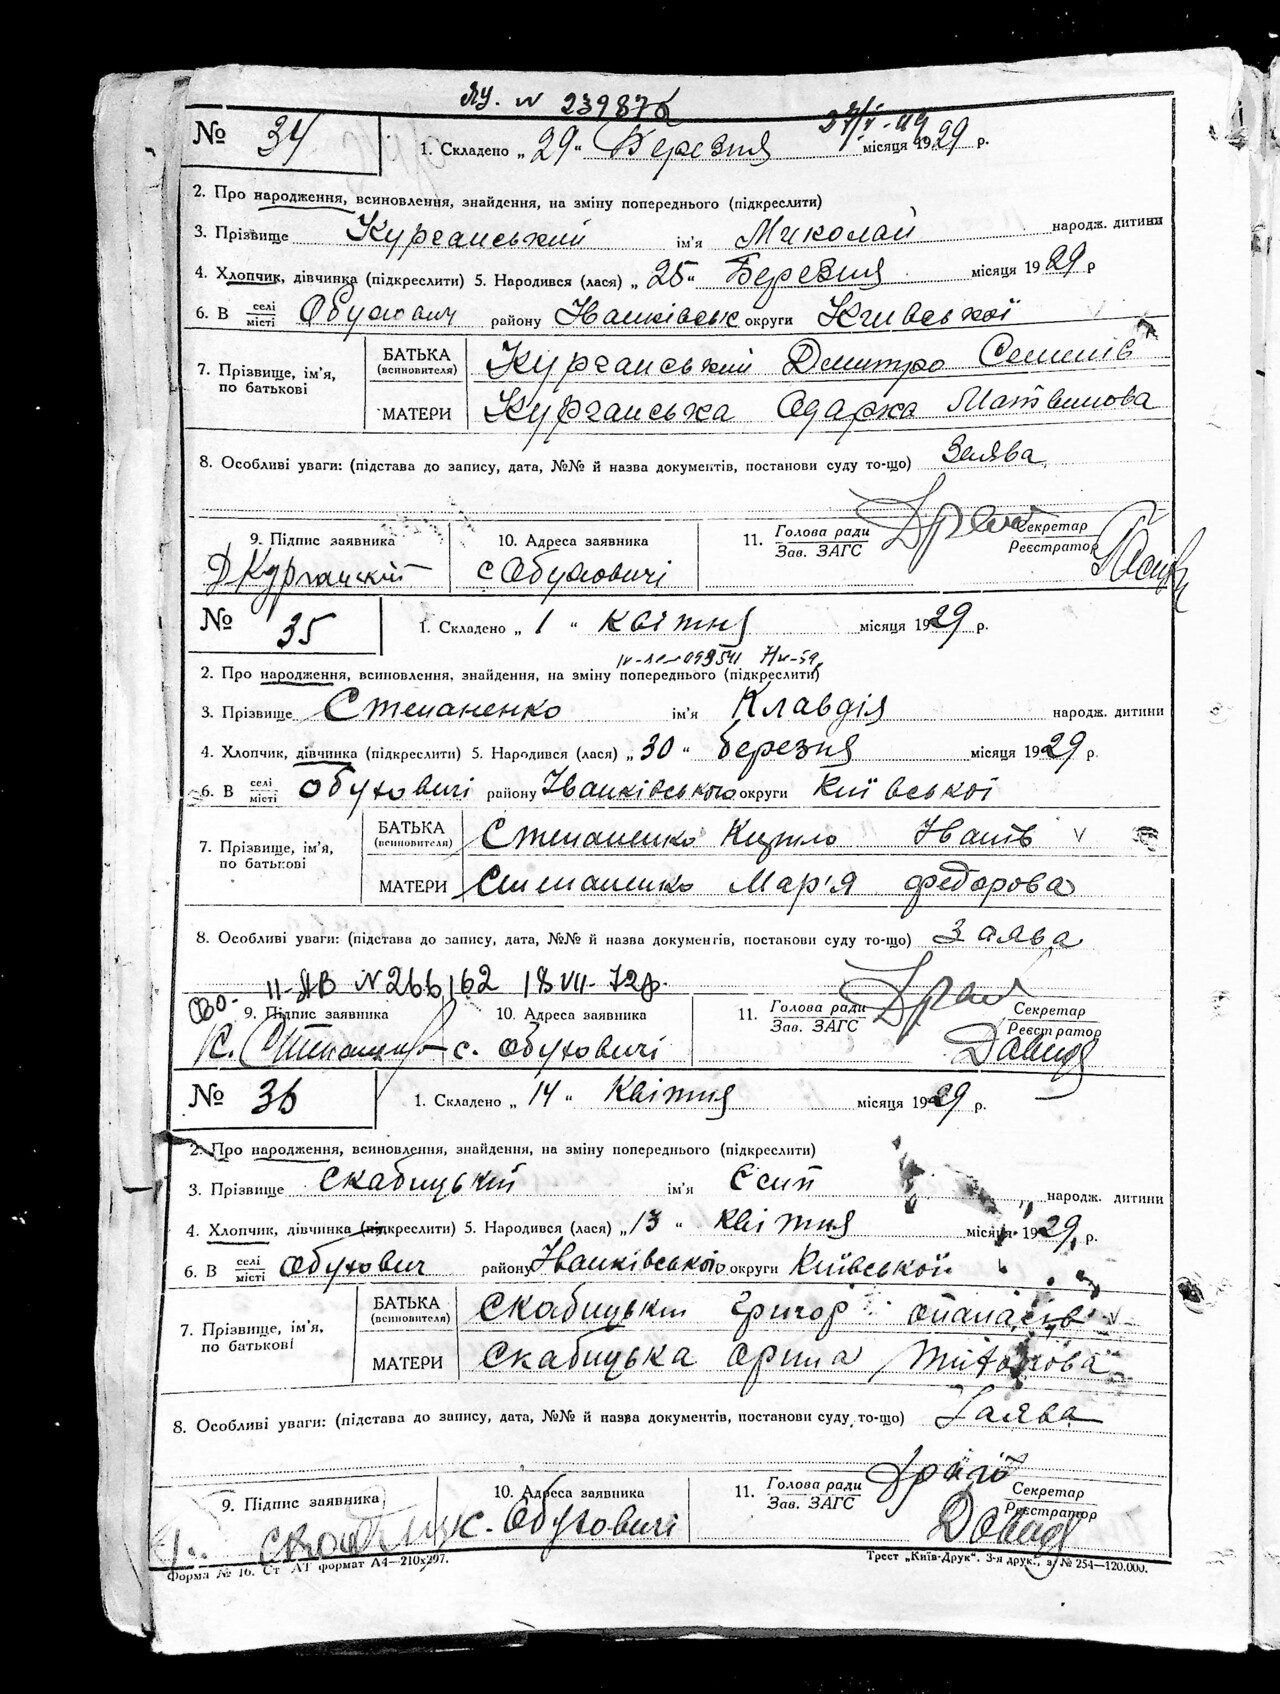 яу. № 239872
27/V-49
№ 34 1. Складено „29“ Березня місяця 1929 р.
2. Про народження, всиновлення, знайдення, на зміну попереднього (підкреслити)
3. Прізвище Курганський ім'я Миколай народж. дитини
4. Хлопчик, дівчинка (підкреслити) 5. Народився (лася) „25“ Березня місяця 1929 р
6. В селі місті Обухович району Іванківськ округи Київської
7. Прізвище, ім'я, по батькові БАТЬКА (всиновителя) Курганський Дмитро Семенів
МАТЕРИ Курганська Одарка Матвіивова
8. Особливі уваги: (підстава до запису, дата, №№ й назва документів, постанови суду то-що) Заява
9. Підпис заявника 10. Адреса заявника 11. Голова ради Зав. ЗАГС Секретар Реєстратор
Д Курганский с Обуховичі
№ 35 1. Складено „1“ квітня місяця 1929 р.
2. Про народження, всиновлення, знайдення, на зміну попереднього (підкреслити)
3. Прізвище Степаненко ім'я Клавдія народж. дитини
4. Хлопчик, дівчинка (підкреслити) 5. Народився (лася) „30“ березня місяця 1929 р.
6. В селі місті Обуховичі району Іванківського округи Київської
7. Прізвище, ім'я, по батькові БАТЬКА (всиновителя) Степаненко Кирило Іванів
МАТЕРИ Степаненко Мар'я Федорова
8. Особливі уваги: (підстава до запису, дата, №№ й назва документів, постанови суду то-що) Заява
II-ЯВ №266162 18 VII-72р.
9. Підпис заявника 10. Адреса заявника 11. Голова ради Зав. ЗАГС Секретар Реєстратор
К. с. Обуховичі Давид
№ 36 1. Складено „14“ Квітня місяця 1929 р.
2. Про народження, всиновлення, знайдення, на зміну попереднього (підкреслити)
3. Прізвище Скабицький ім'я Єсип народж. дитини
4. Хлопчик, дівчинка (підкреслити) 5. Народився (лася) „13“ квітня місяця 1929 р.
6. В селі місті Обухович району Іванківського округи Київської
7. Прізвище, ім'я, по батькові БАТЬКА (всиновителя) Скабицьки Григор Опанасів
МАТЕРИ Скабицька Орина
8. Особливі уваги: (підстава до запису, дата, №№ й назва документів, постанови суду то-що) Заява
9. Підпис заявника 10. Адреса заявника 11. Голова ради Зав. ЗАГС Секретар Реєстратор
с. Обуховичі Давид
Форма № 16. Ст АТ формат А4—210х297. Трест „Київ-Друк“. 3-я друк., з. № 254—120.000.